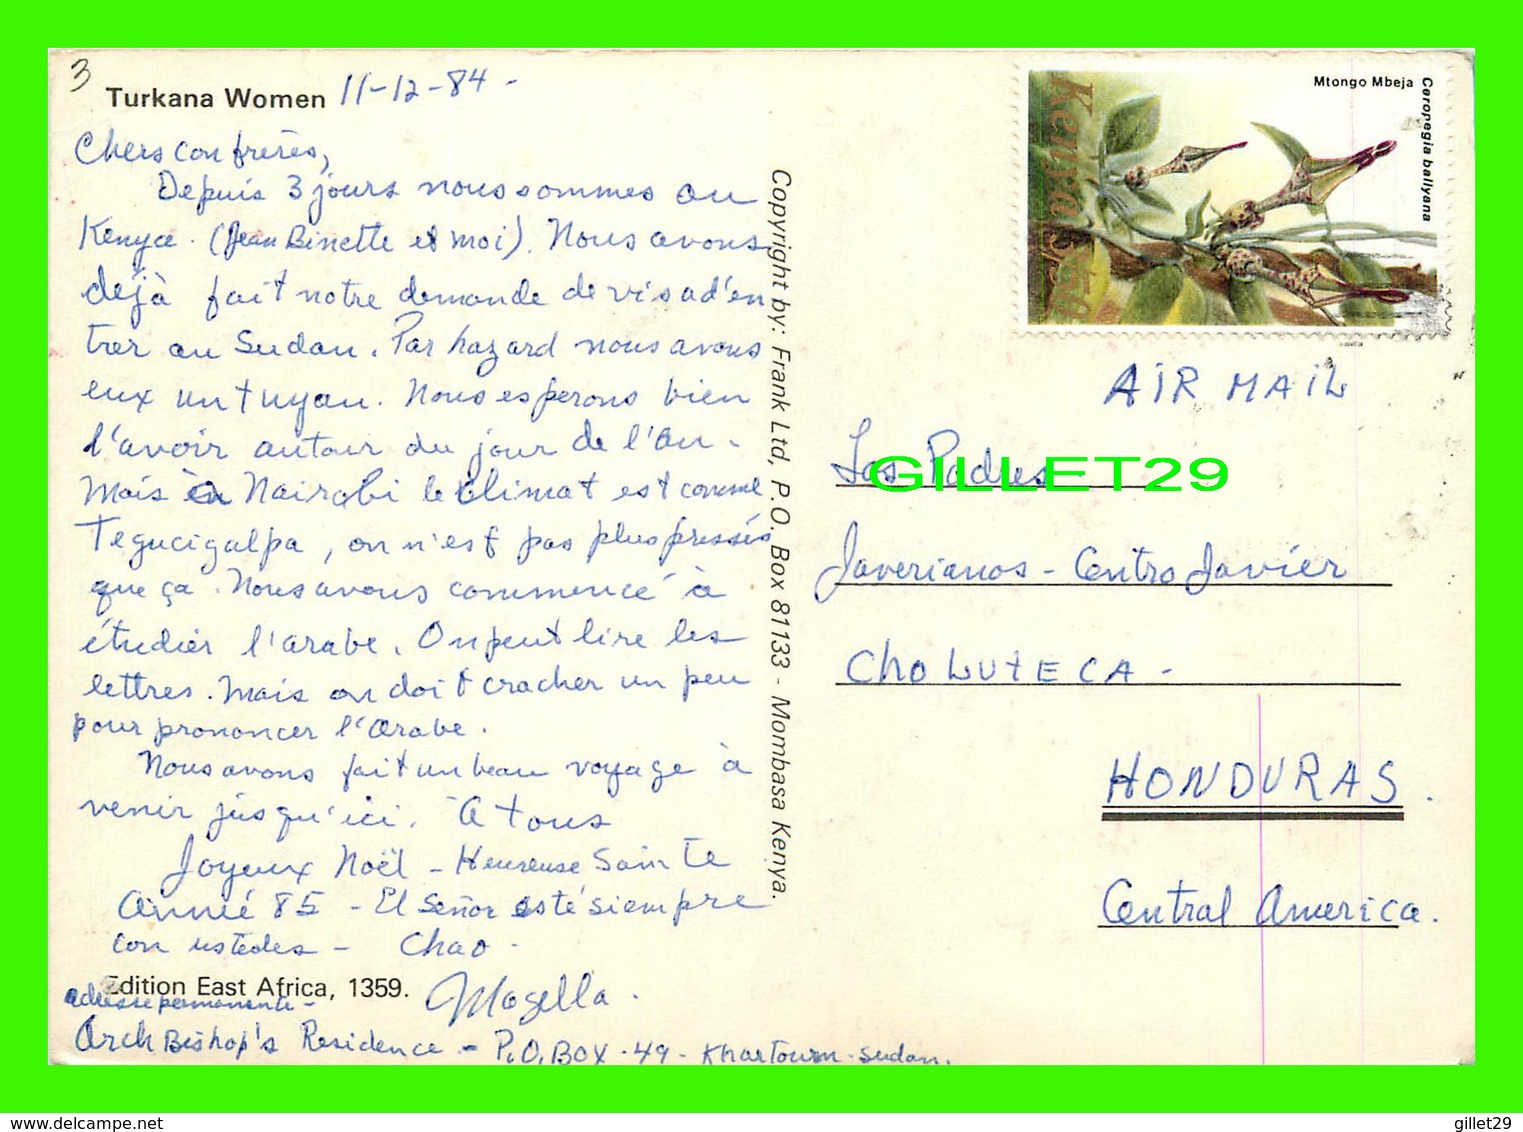 3
Turkana Women 11-12-84 -
Chers confrères,
Depuis 3 jours nous sommes au
Kenya. (Jean Binette et moi). Nous avons
déjà fait notre demande de visa d'en
trer au Sudan. Par hazard nous avons
eux un tuyau. Nous esperons bien
l'avoir autour du jour de l'an -
Mais à Nairobi le climat est comme
Tegucigalpa, on n'est pas plus pressés
que ça. Nous avons commencé à
étudier l'arabe. On peut lire les
lettres. Mais on doit cracher un peu
pour prononcer l'Arabe.
Nous avons fait un beau voyage à
venir jusqu'ici. A tous
Joyeux Noël - Heureuse Sainte
Année 85 - El Señor esté siempre
con ustedes - Chao -
Edition East Africa, 1359.
Magella.
adresse permanente -
ArchBishop's Residence - P.O. Box - 49 - Khartoum - Sudan.
Copyright by: Frank Ltd, P.O. Box 81133 - Mombasa Kenya.
Mtongo Mbeja
Ceropegia ballyana
Kenya
AIR MAIL
Los Padres
GILLET29
Javerianos - Centro Javier
CHOLUTECA -
HONDURAS.
Central America.
delcampe.net
gillet29